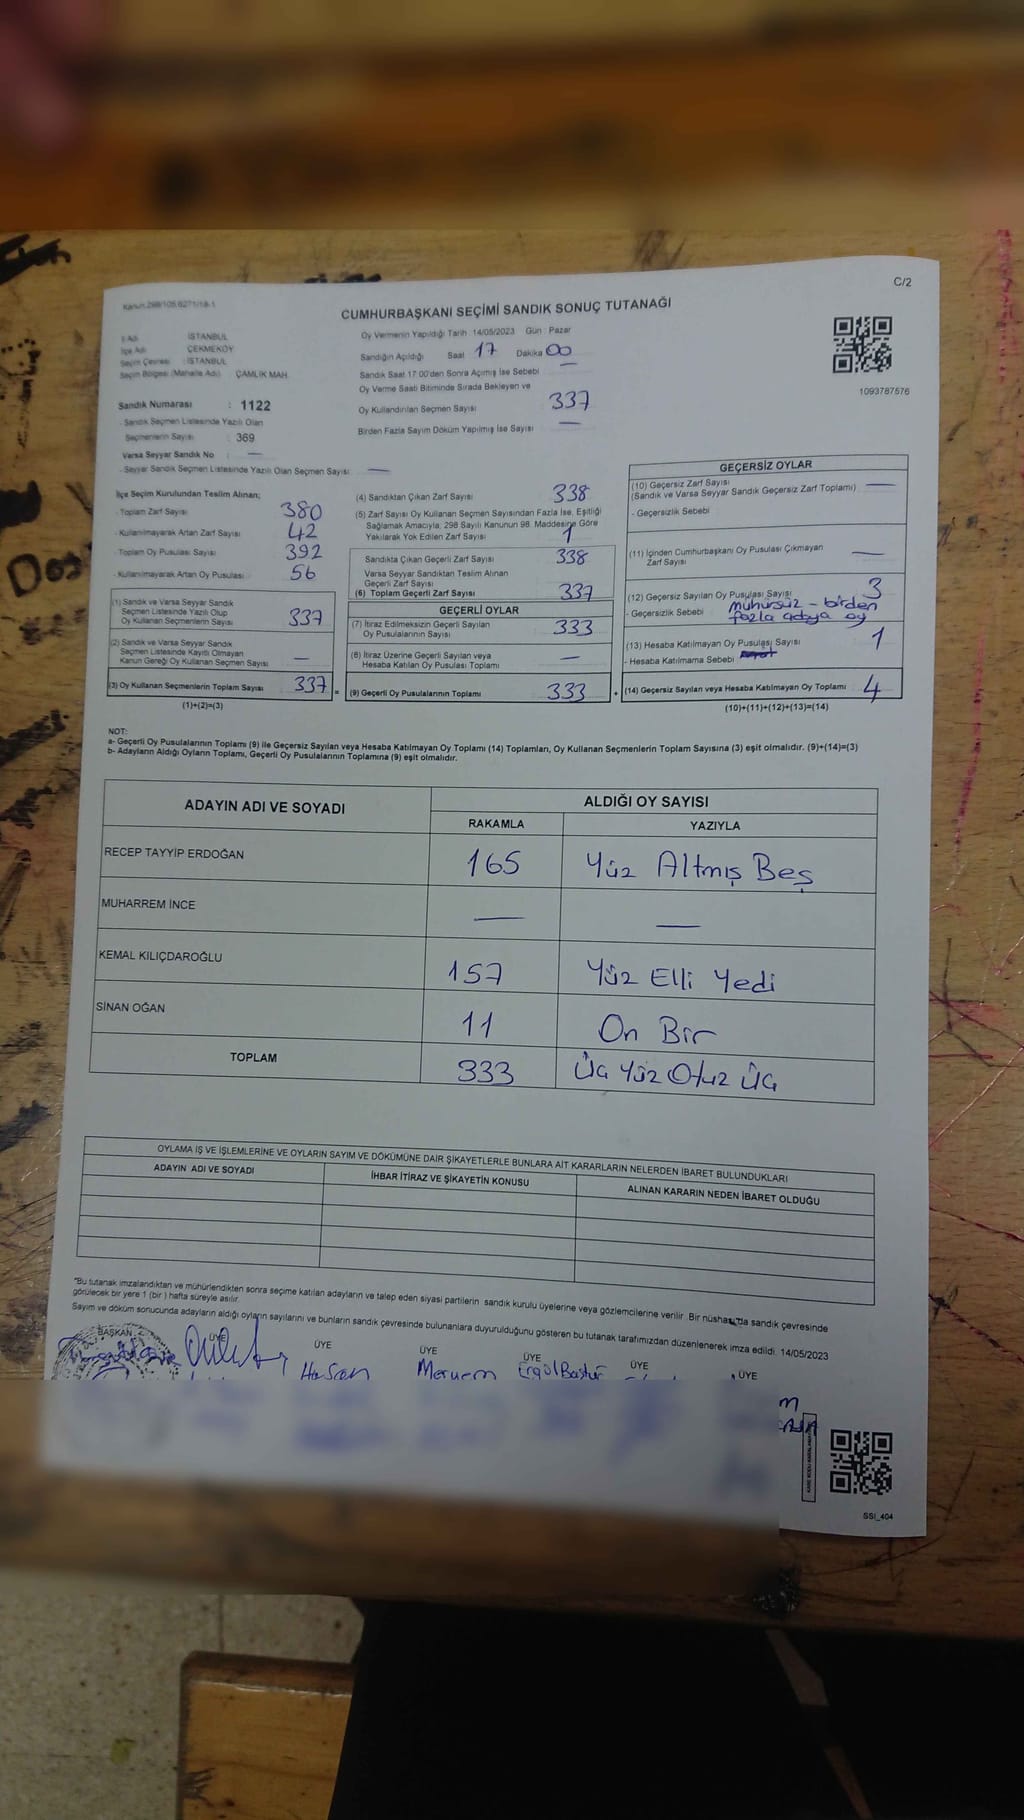 C/2
Kanun 298/105,6271/18-1
CUMHURBAŞKANI SEÇİMİ SANDIK SONUÇ TUTANAĞI
İl Adı : İSTANBUL
İlçe Adı : ÇEKMEKÖY
Seçim Çevresi : İSTANBUL
Seçim Bölgesi (Mahalle Adı) : ÇAMLIK MAH.
Sandık Numarası : 1122
- Sandık Seçmen Listesinde Yazılı Olan
Seçmenlerin Sayısı : 369
Varsa Seyyar Sandık No : —
- Seyyar Sandık Seçmen Listesinde Yazılı Olan Seçmen Sayısı : —
Oy Vermenin Yapıldığı Tarih : 14/05/2023 Gün : Pazar
Sandığın Açıldığı Saat 17 Dakika 00
Sandık Saat 17:00'den Sonra Açılmış İse Sebebi —
Oy Verme Saati Bitiminde Sırada Bekleyen ve
Oy Kullandırılan Seçmen Sayısı 337
Birden Fazla Sayım Döküm Yapılmış İse Sayısı —
1093787576
İlçe Seçim Kurulundan Teslim Alınan;
- Toplam Zarf Sayısı 380
- Kullanılmayarak Artan Zarf Sayısı 42
- Toplam Oy Pusulası Sayısı 392
- Kullanılmayarak Artan Oy Pusulası 56
(1) Sandık ve Varsa Seyyar Sandık
Seçmen Listesinde Yazılı Olup
Oy Kullanan Seçmenlerin Sayısı 337
(2) Sandık ve Varsa Seyyar Sandık
Seçmen Listesinde Kayıtlı Olmayan
Kanun Gereği Oy Kullanan Seçmen Sayısı —
(3) Oy Kullanan Seçmenlerin Toplam Sayısı 337 =
(1)+(2)=(3)
(4) Sandıktan Çıkan Zarf Sayısı 338
(5) Zarf Sayısı Oy Kullanan Seçmen Sayısından Fazla İse, Eşitliği
Sağlamak Amacıyla, 298 Sayılı Kanunun 98. Maddesine Göre
Yakılarak Yok Edilen Zarf Sayısı 1
Sandıkta Çıkan Geçerli Zarf Sayısı 338
Varsa Seyyar Sandıktan Teslim Alınan
Geçerli Zarf Sayısı
(6) Toplam Geçerli Zarf Sayısı 337
GEÇERLİ OYLAR
(7) İtiraz Edilmeksizin Geçerli Sayılan
Oy Pusulalarının Sayısı 333
(8) İtiraz Üzerine Geçerli Sayılan veya
Hesaba Katılan Oy Pusulası Toplamı —
(9) Geçerli Oy Pusulalarının Toplamı 333 +
GEÇERSİZ OYLAR
(10) Geçersiz Zarf Sayısı
(Sandık ve Varsa Seyyar Sandık Geçersiz Zarf Toplamı) —
- Geçersizlik Sebebi
(11) İçinden Cumhurbaşkanı Oy Pusulası Çıkmayan
Zarf Sayısı —
(12) Geçersiz Sayılan Oy Pusulası Sayısı 3
- Geçersizlik Sebebi mühürsüz - birden
fazla adaya oy
(13) Hesaba Katılmayan Oy Pusulası Sayısı 1
- Hesaba Katılmama Sebebi
(14) Geçersiz Sayılan veya Hesaba Katılmayan Oy Toplamı 4
(10)+(11)+(12)+(13)=(14)
NOT:
a- Geçerli Oy Pusulalarının Toplamı (9) ile Geçersiz Sayılan veya Hesaba Katılmayan Oy Toplamı (14) Toplamları, Oy Kullanan Seçmenlerin Toplam Sayısına (3) eşit olmalıdır. (9)+(14)=(3)
b- Adayların Aldığı Oyların Toplamı, Geçerli Oy Pusulalarının Toplamına (9) eşit olmalıdır.
ADAYIN ADI VE SOYADI ALDIĞI OY SAYISI
RAKAMLA YAZIYLA
RECEP TAYYİP ERDOĞAN 165 Yüz Altmış Beş
MUHARREM İNCE — —
KEMAL KILIÇDAROĞLU 157 Yüz Elli Yedi
SİNAN OĞAN 11 On Bir
TOPLAM 333 Üç Yüz Otuz Üç
OYLAMA İŞ VE İŞLEMLERİNE VE OYLARIN SAYIM VE DÖKÜMÜNE DAİR ŞİKAYETLERLE BUNLARA AİT KARARLARIN NELERDEN İBARET BULUNDUKLARI
ADAYIN ADI VE SOYADI İHBAR İTİRAZ VE ŞİKAYETİN KONUSU ALINAN KARARIN NEDEN İBARET OLDUĞU
*Bu tutanak imzalandıktan ve mühürlendikten sonra seçime katılan adayların ve talep eden siyasi partilerin sandık kurulu üyelerine veya gözlemcilerine verilir. Bir nüshası da sandık çevresinde
görülecek bir yere 1 (bir) hafta süreyle asılır.
Sayım ve döküm sonucunda adayların aldığı oyların sayılarını ve bunların sandık çevresinde bulunanlara duyurulduğunu gösteren bu tutanak tarafımızdan düzenlenerek imza edildi. 14/05/2023
BAŞKAN ÜYE ÜYE ÜYE ÜYE ÜYE ÜYE
Hasan Meryem Ergül Baştür
SSI_404